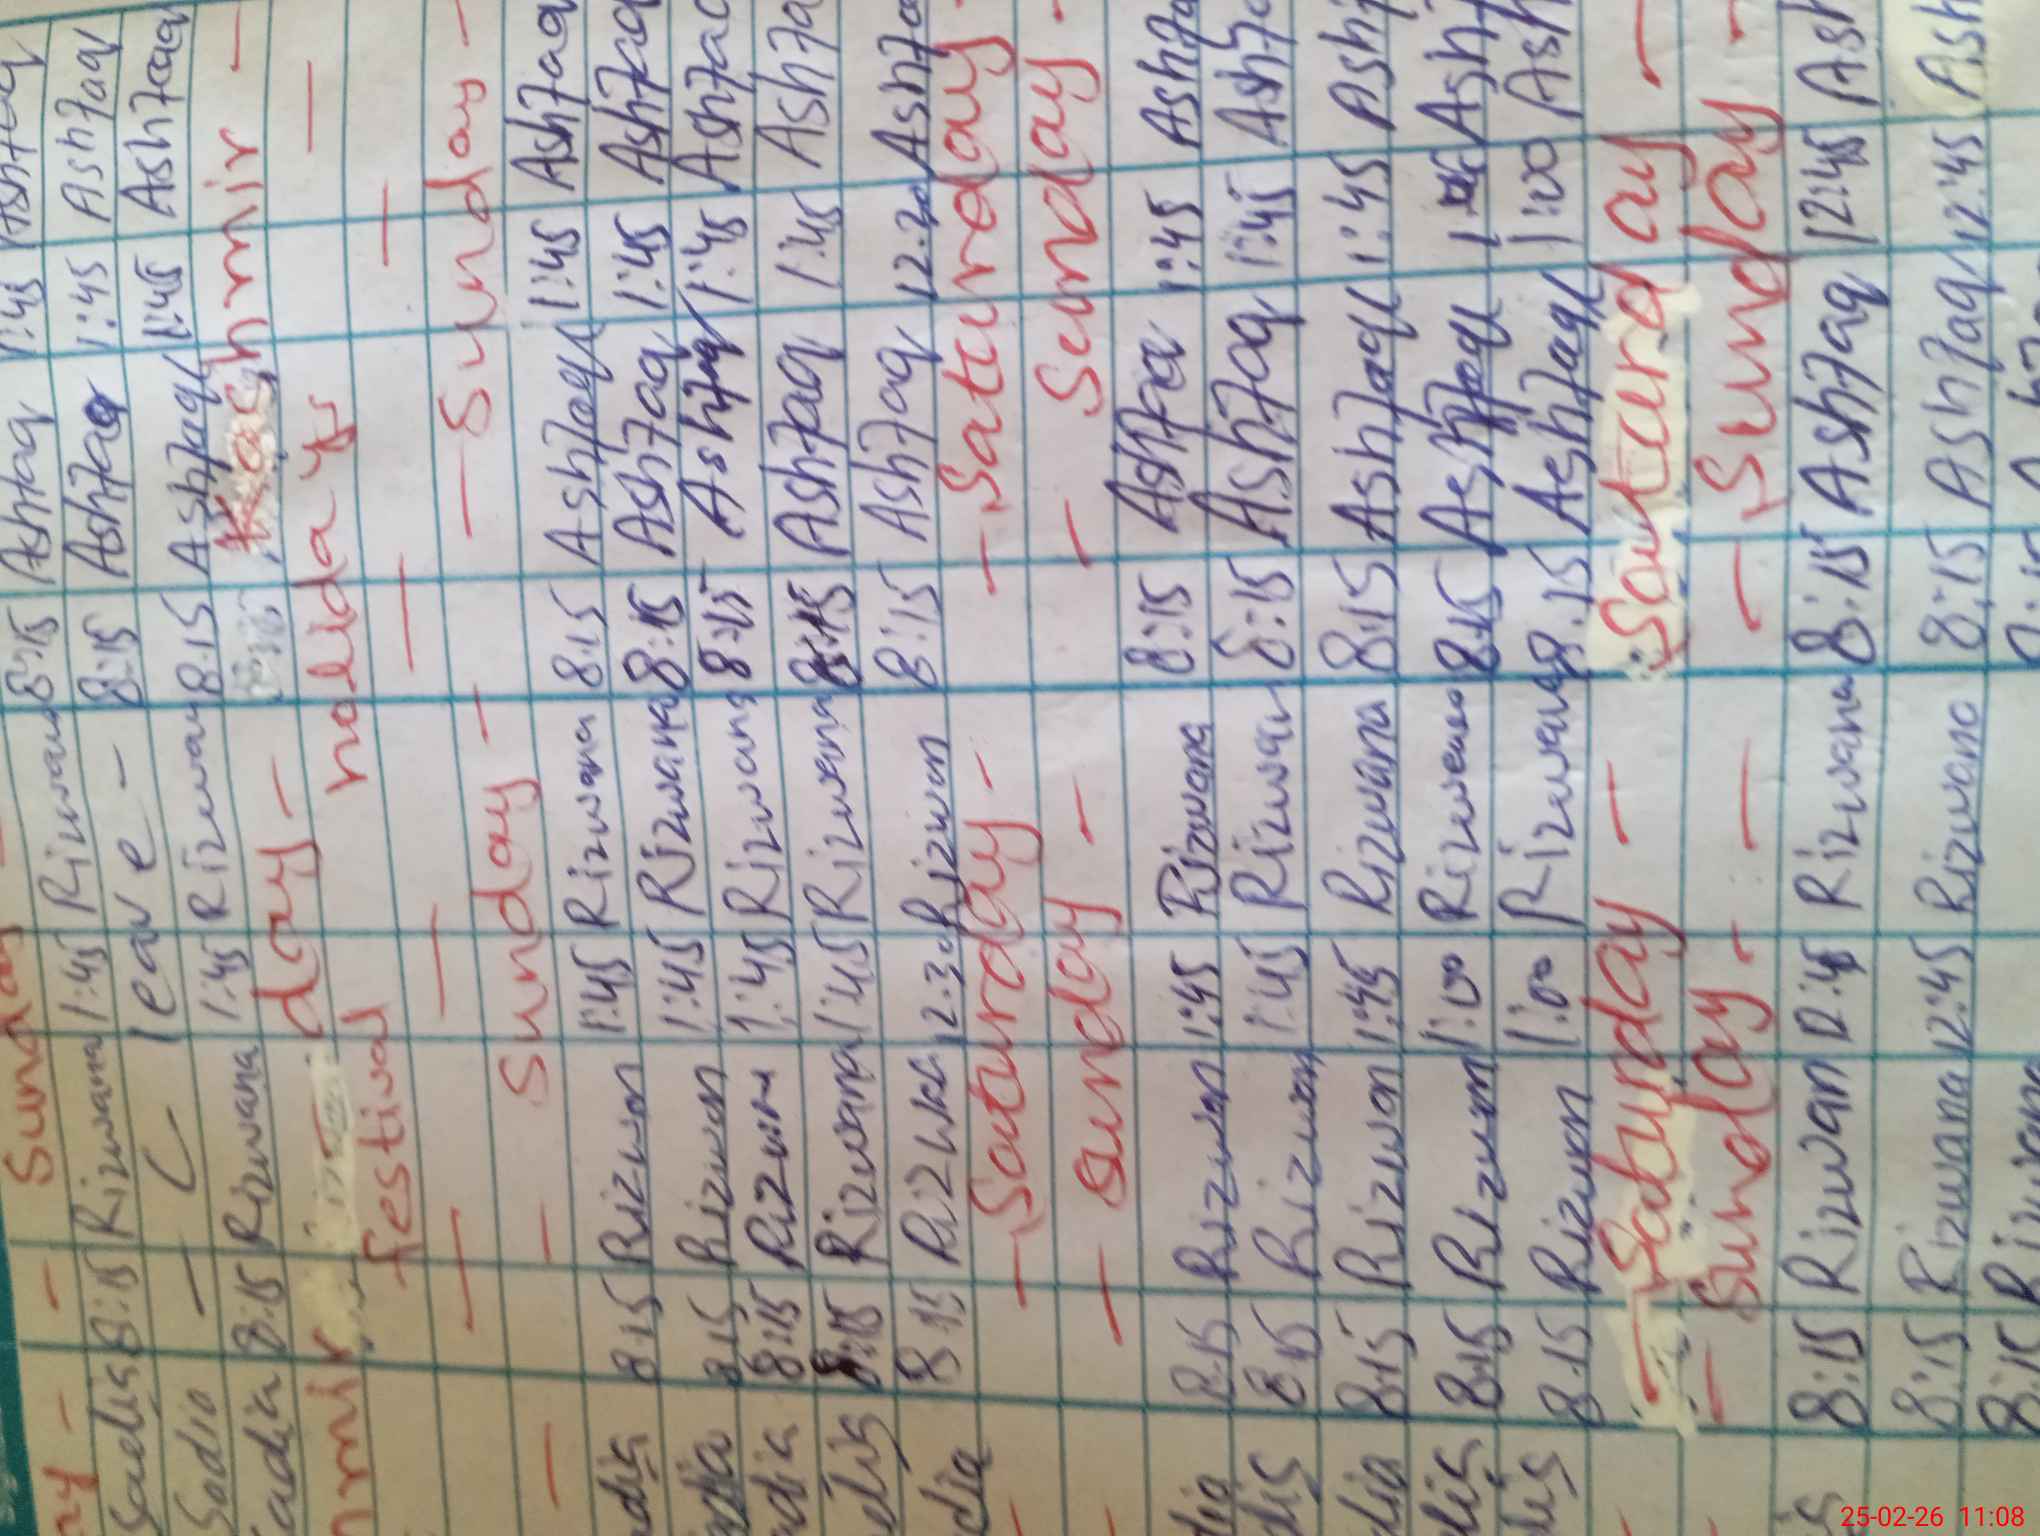 Sunday
Sadia 8:15 Rizwana 1:45 Rizwana 8:15 Ashfaq 1:45 Ashfaq
Sadia leave 8:15 Ashfaq 1:45 Ashfaq
8:15 Rizwana 1:45 Rizwana 8.15 Ashfaq 1:45 Ashfaq
day - Kashmir -
festival holidays
- Sunday - - Sunday -
8.15 Rizwan 1:45 Rizwana 8.15 Ashfaq 1:45 Ashfaq
8.15 Rizwan 1:45 Rizwana 8:15 Ashfaq 1:45 Ashfaq
8:15 Rizwan 1:45 Rizwana 8:15 Ashfaq 1:45 Ashfaq
8:15 Rizwana 1:45 Rizwana 8:15 Ashfaq 1:45 Ashfa
dia 8:15 12.30 Rizwan 8:15 Ashfaq Ashfa
- Saturday - - Saturday -
- Sunday - - Sunday -
8.15 Rizwan 1:45 Rizwana 8:15 Ashfaq 1:45 Ashfa
8.15 Rizwan 1:45 Rizwan 8:15 Ashfaq 1:45 Ashfa
8.15 Rizwan 1:45 Rizwana 8.15 Ashfaq 1:45 Ashf
8.15 Rizwan 1:00 8.15 Ashfaq Ash
8.15 Rizwan 1:00 Rizwana 8.15 Ashfaq 1:00 Ash
- Saturday - Saturday -
- Sunday - - Sunday -
8:15 Rizwan 12:45 Rizwana 8:15 Ashfaq 12:45 Ash
8:15 Rizwana 12:45 Rizwana 8:15 Ashfaq 12:45 Ash
8:15
25-02-26 11:08